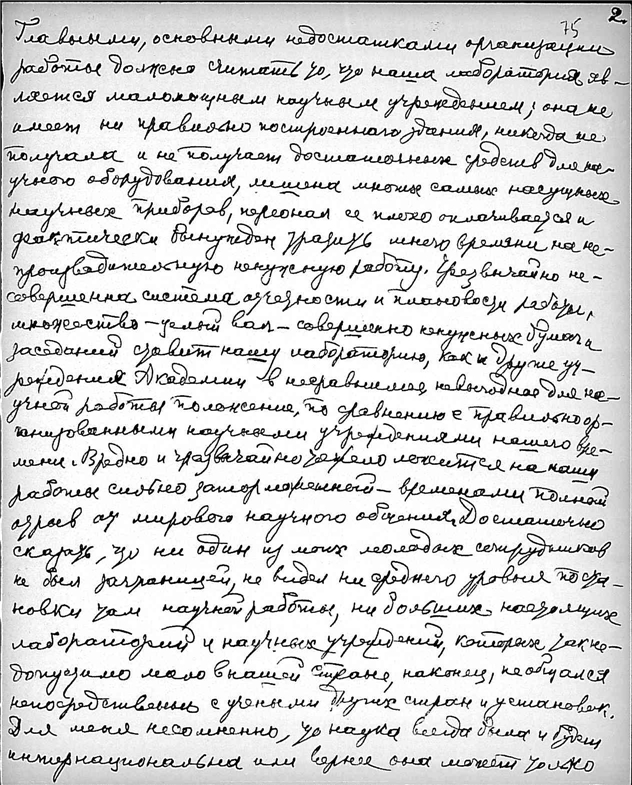 2.
75
Главными, основными недостатками организации
работы должно считать то, что наша лаборатория яв-
ляется маломощным научным учреждением; она не
имеет ни правильно построенного здания, никогда не
получала и не получает достаточных средств для на-
учного оборудования, лишена многих самых насущных
научных приборов, персонал ее плохо оплачивается и
фактически вынужден тратить много времени на не-
производительную ненужную работу. Чрезвычайно не-
совершенна система отчетности и плановости работы,
множество – целый вал – совершенно ненужных бумаг и
заседаний ставит нашу лабораторию, как и другие уч-
реждения Академии в несравнимое невыгодное для на-
учной работы положение, по сравнению с правильно ор-
ганизованными научными учреждениями нашего вре-
мени. Вредно и чрезвычайно тяжело ложится на нашу
работу сильно заторможенный – временами полный
отрыв от мирового научного общения. Достаточно
сказать, что ни один из моих молодых сотрудников
не был заграницей, не видел ни среднего уровня поста-
новки там научной работы, ни больших настоящих
лабораторий и научных учреждений, которых так не-
допустимо мало в нашей стране, наконец, не общался
непосредственно с учеными других стран и установок.
Для меня несомненно, что наука всегда была и будет
интернациональна или вернее она может только